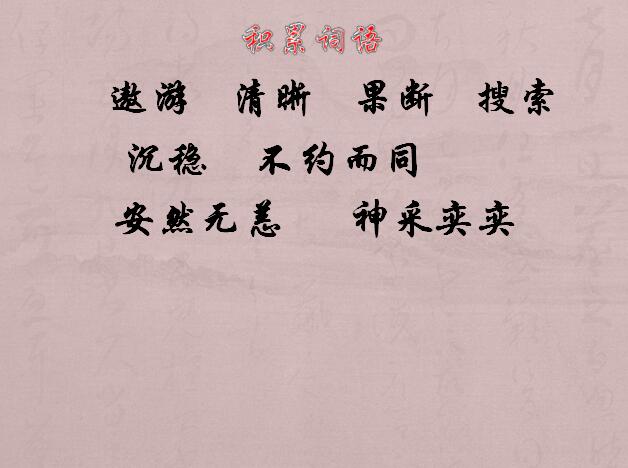 积累词语
遨游 清晰 果断 搜索
沉稳 不约而同
安然无恙 神采奕奕